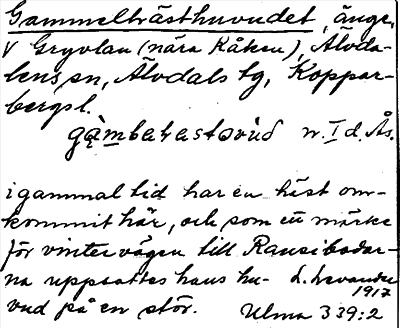 Gammelhästhuvudet, ängr,
V Gryvlan (nära Kåtsen), Älvda-
lens sn, Älvdals tg, Koppar-
bergs l.
n. I d. Ås.
i gammal tid har en häst om-
kommit här, och som ett märke
för vintervägen till Ransibodar-
na uppsattes hans hu-
vud på en stör.
L. Levander
1917
Ulma 339:2